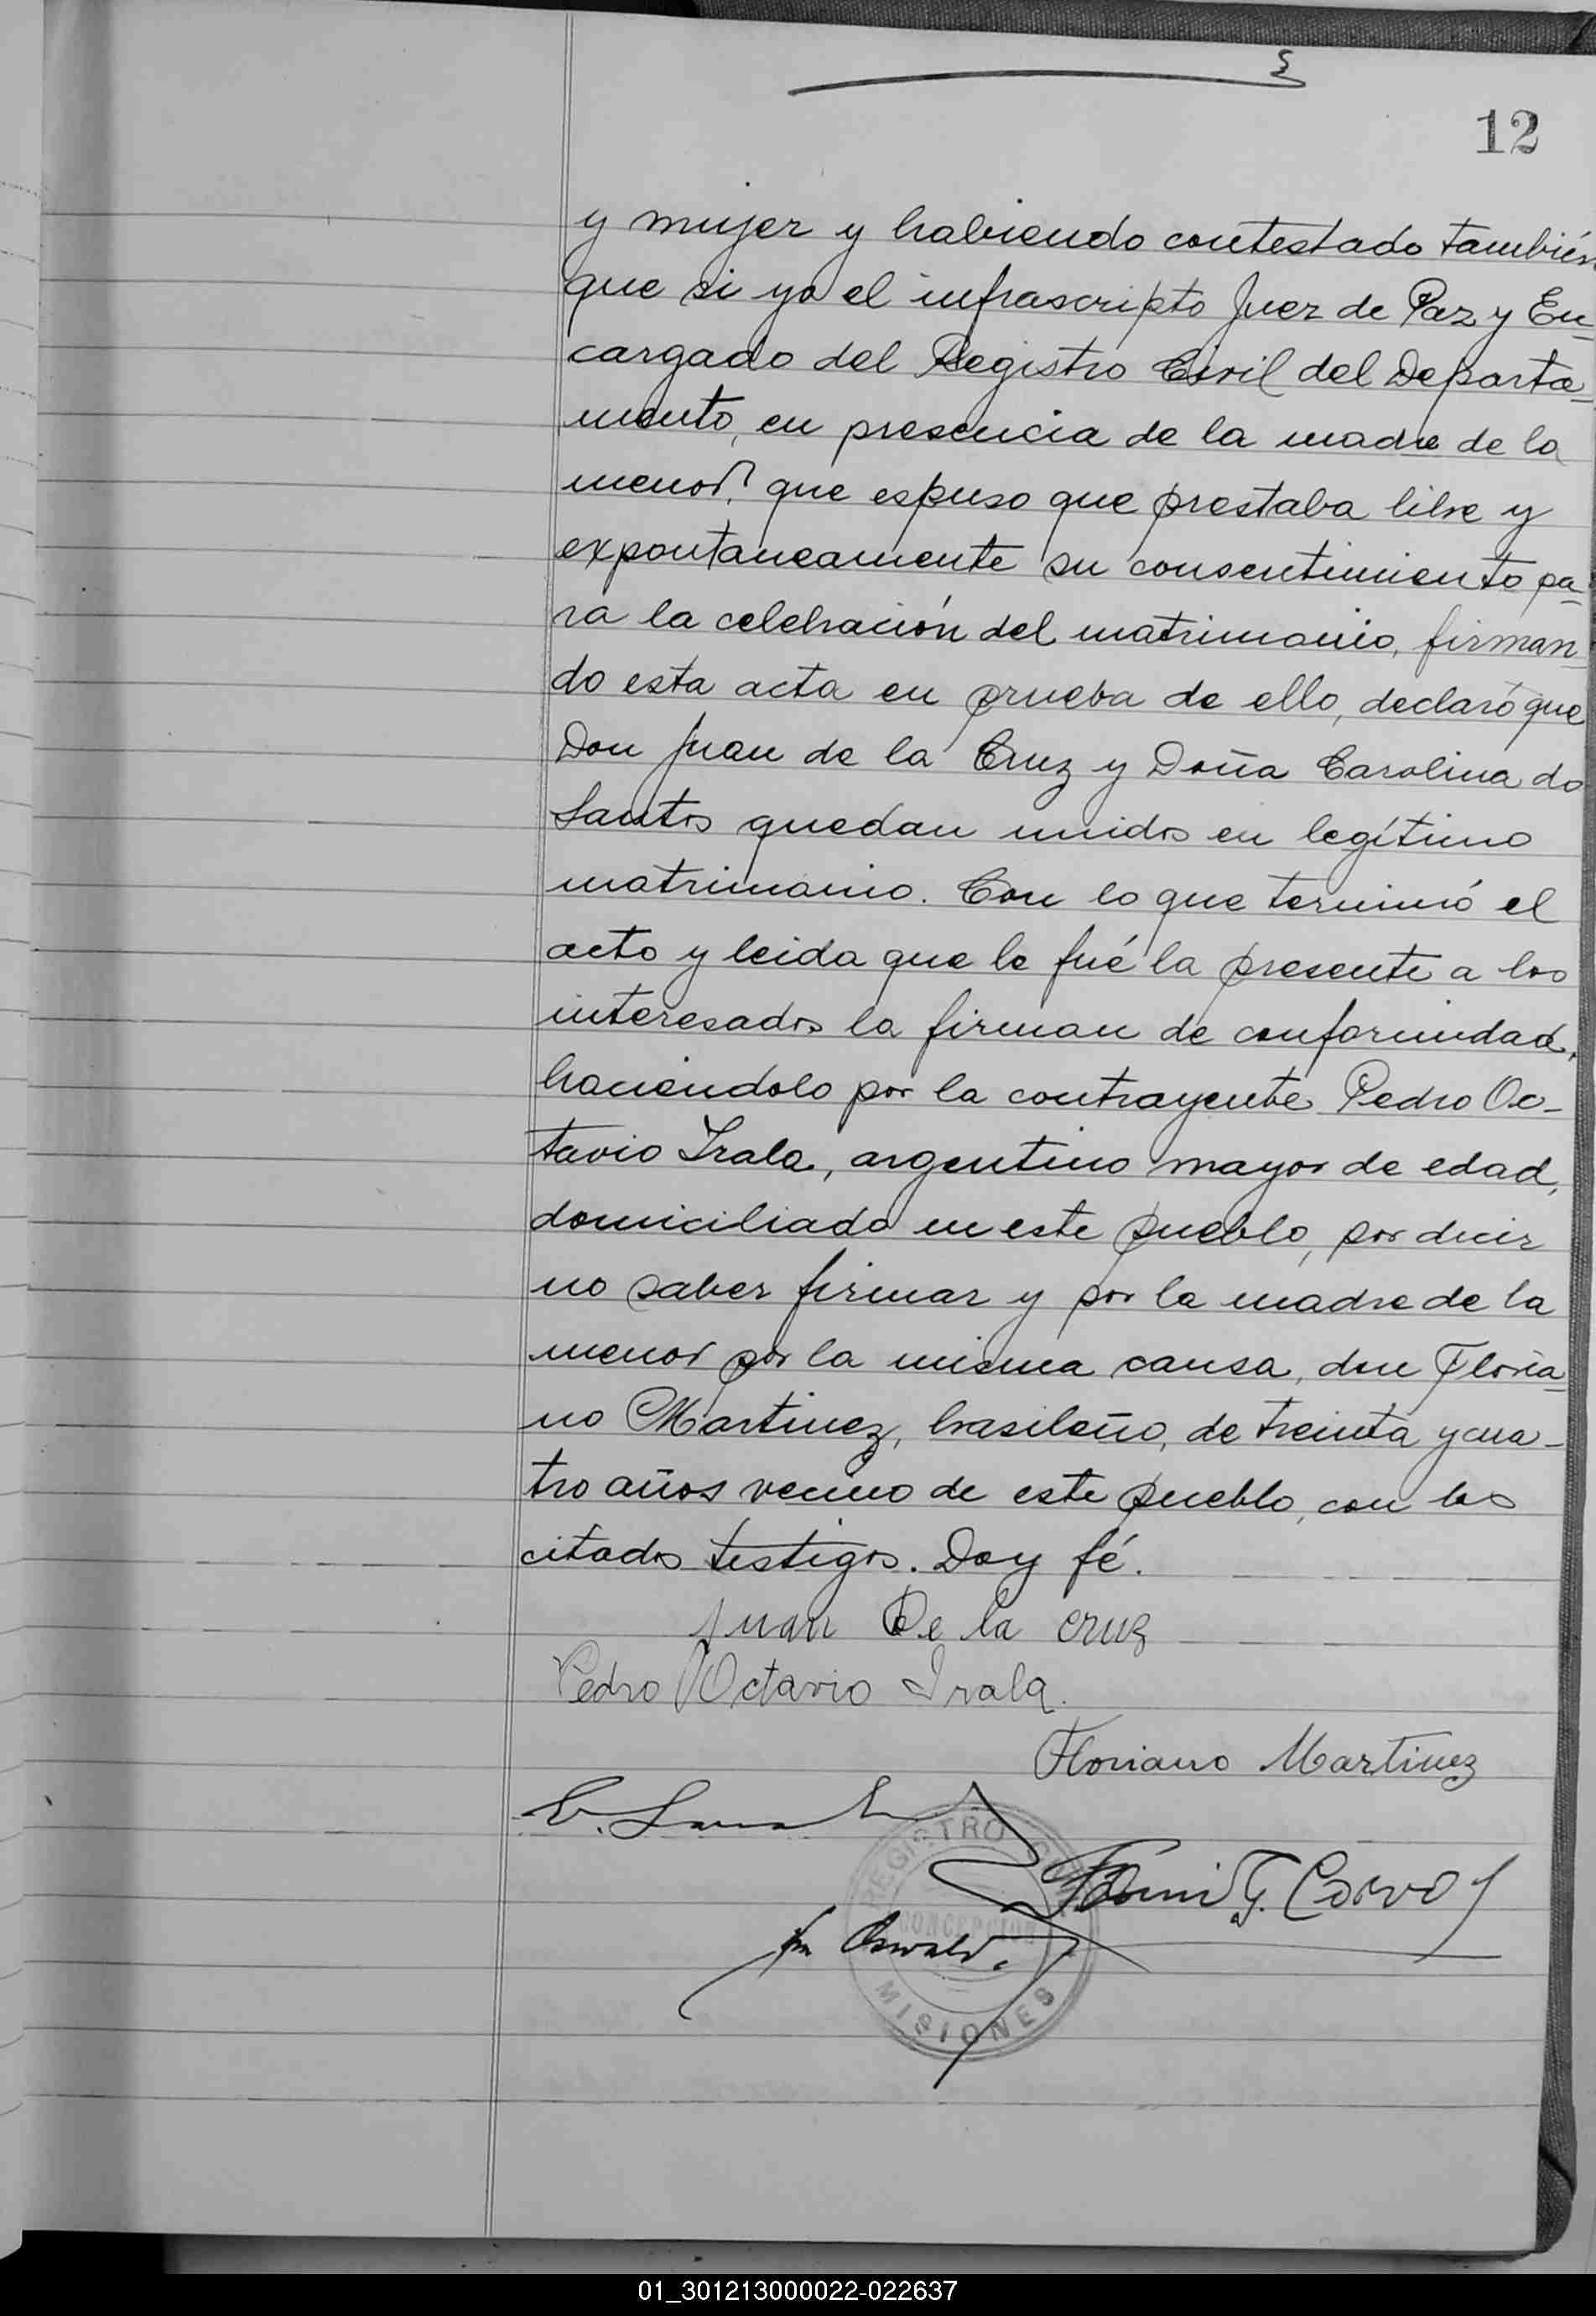 12
y mujer y habiendo contestado también
que si yo el infrascripto Juez de Paz y En-
cargado del Registro Civil del Departa-
mento, en presencia de la madre de la
menor que espuso que prestaba libre y
expontaneamente su consentimiento pa-
ra la celebración del matrimonio, firman-
do esta acta en prueba de ello, declaró que
Don Juan de la Cruz y Doña Carolina do
Santos quedan unidos en legítimo
matrimonio. Con lo que terminó el
acto y leida que le fué la presente a los
interesados la firman de conformidad,
haciendolo por la contrayente Pedro Oc-
tavio Irala, argentino mayor de edad,
domiciliado en este pueblo, por decir
no saber firmar y por la madre de la
menor por la misma causa, don Floria-
no Martinez, brasileño, de treinta y cua-
tro años vecino de este pueblo, con los
citados testigos. Doy fé.
Juan De la cruz
Pedro Octavio Irala.
Floriano Martinez
REGISTRO CIVIL
F. Corvo
CONCEPCION
Oswald.
MISIONES
01_301213000022-022637